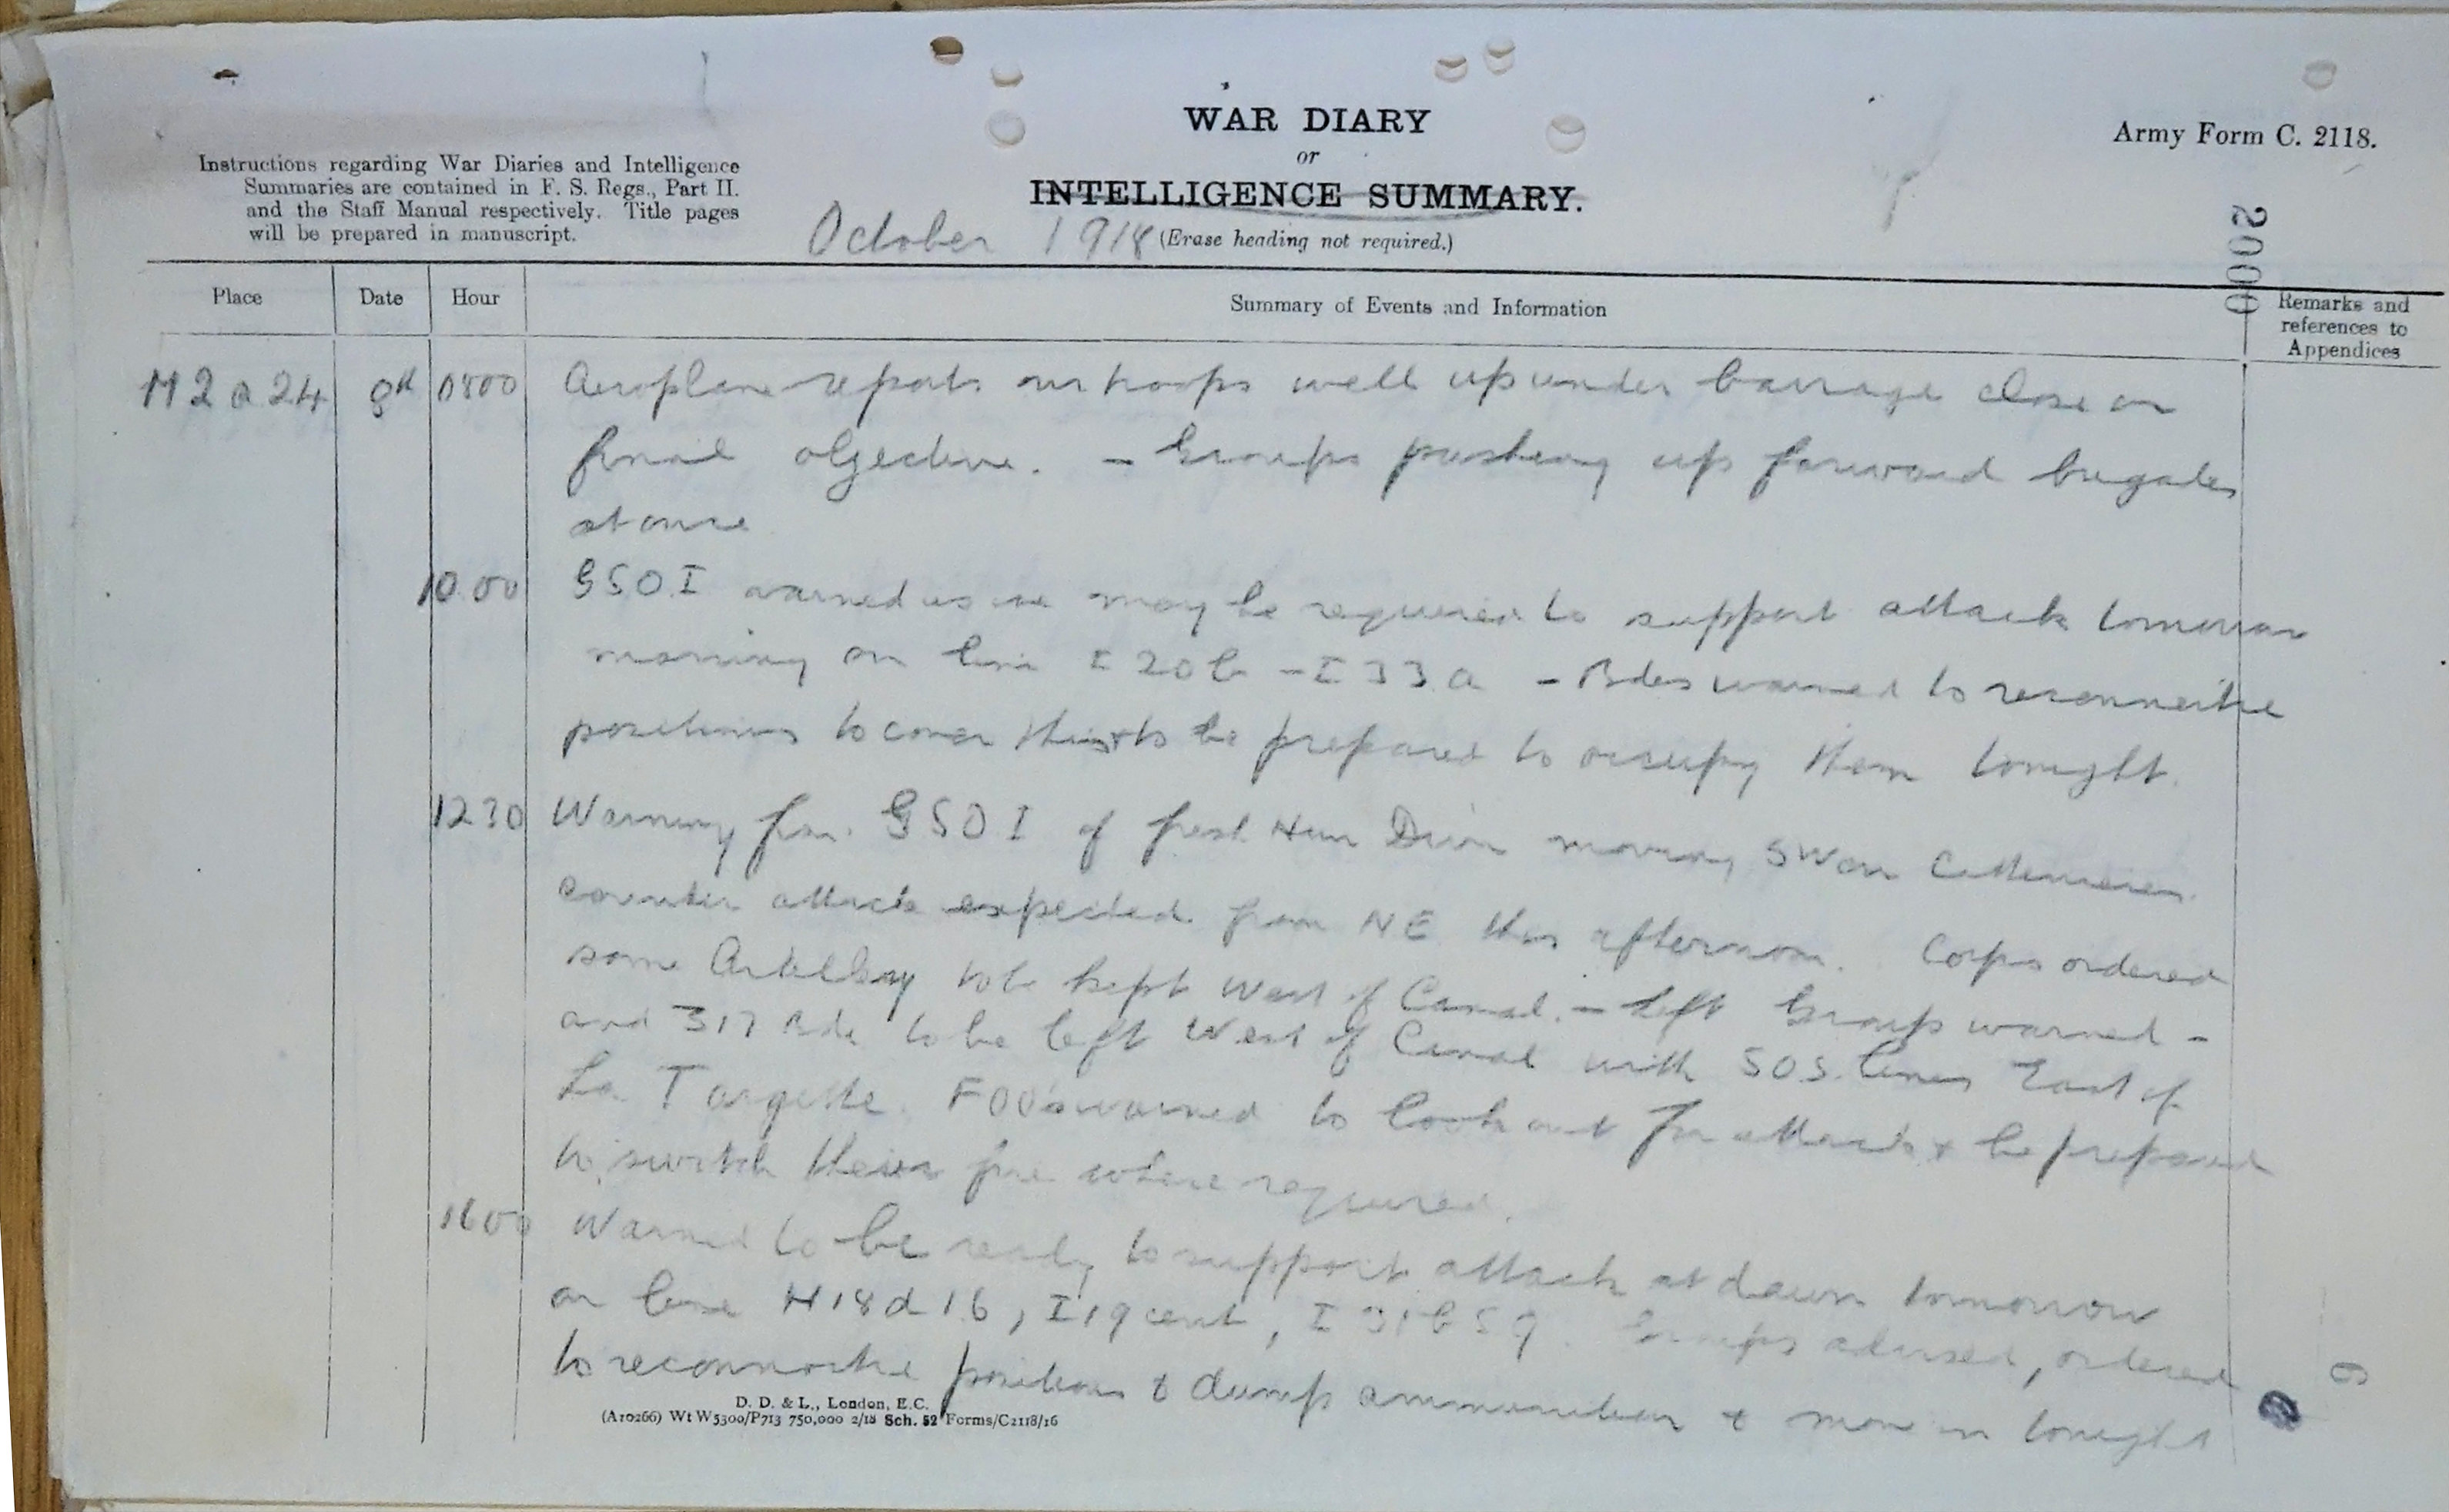 WAR DIARY
or
INTELLIGENCE SUMMARY.
(Erase heading not required.)
Army Form C. 2118.
Instructions regarding War Diaries and Intelligence
Summaries are contained in F. S. Regs., Part II.
and the Staff Manual respectively. Title pages
will be prepared in manuscript.
October 1918
0002
Place Date Hour Summary of Events and Information Remarks and
references to
Appendices
M2 a 24 8th 0800 Aeroplane reports our troops well up under barrage close on
final objective. - Groups pushing up forward brigades
at once
10.00 GSO.I warned us we may be required to support attack tomorrow
morning on line I 20 b - I 33 a - Bdes warned to reconnoitre
positions to cover this & to be prepared to occupy them tonight.
1230 Warning from GSO I of fresh Hun Divn moving SW on
counter attack expected from NE this afternoon. Corps ordered
some Artillery to be kept West of Canal. - Left Group warned -
and 317 Bde to be left West of Canal with SOS. lines East of
La Targette. FOOs warned to look out for attack & be prepared
to switch their fire where required.
1600 Warned to be ready to support attack at dawn tomorrow
on line H18d 1.6, I19 cent, I 31 b 5 9. Groups advised, ordered
to reconnoitre positions & dump ammunition & move in tonight
D. D. & L., London, E.C.
(A10266) Wt W5300/P713 750,000 2/18 Sch. 52 Forms/C2118/16